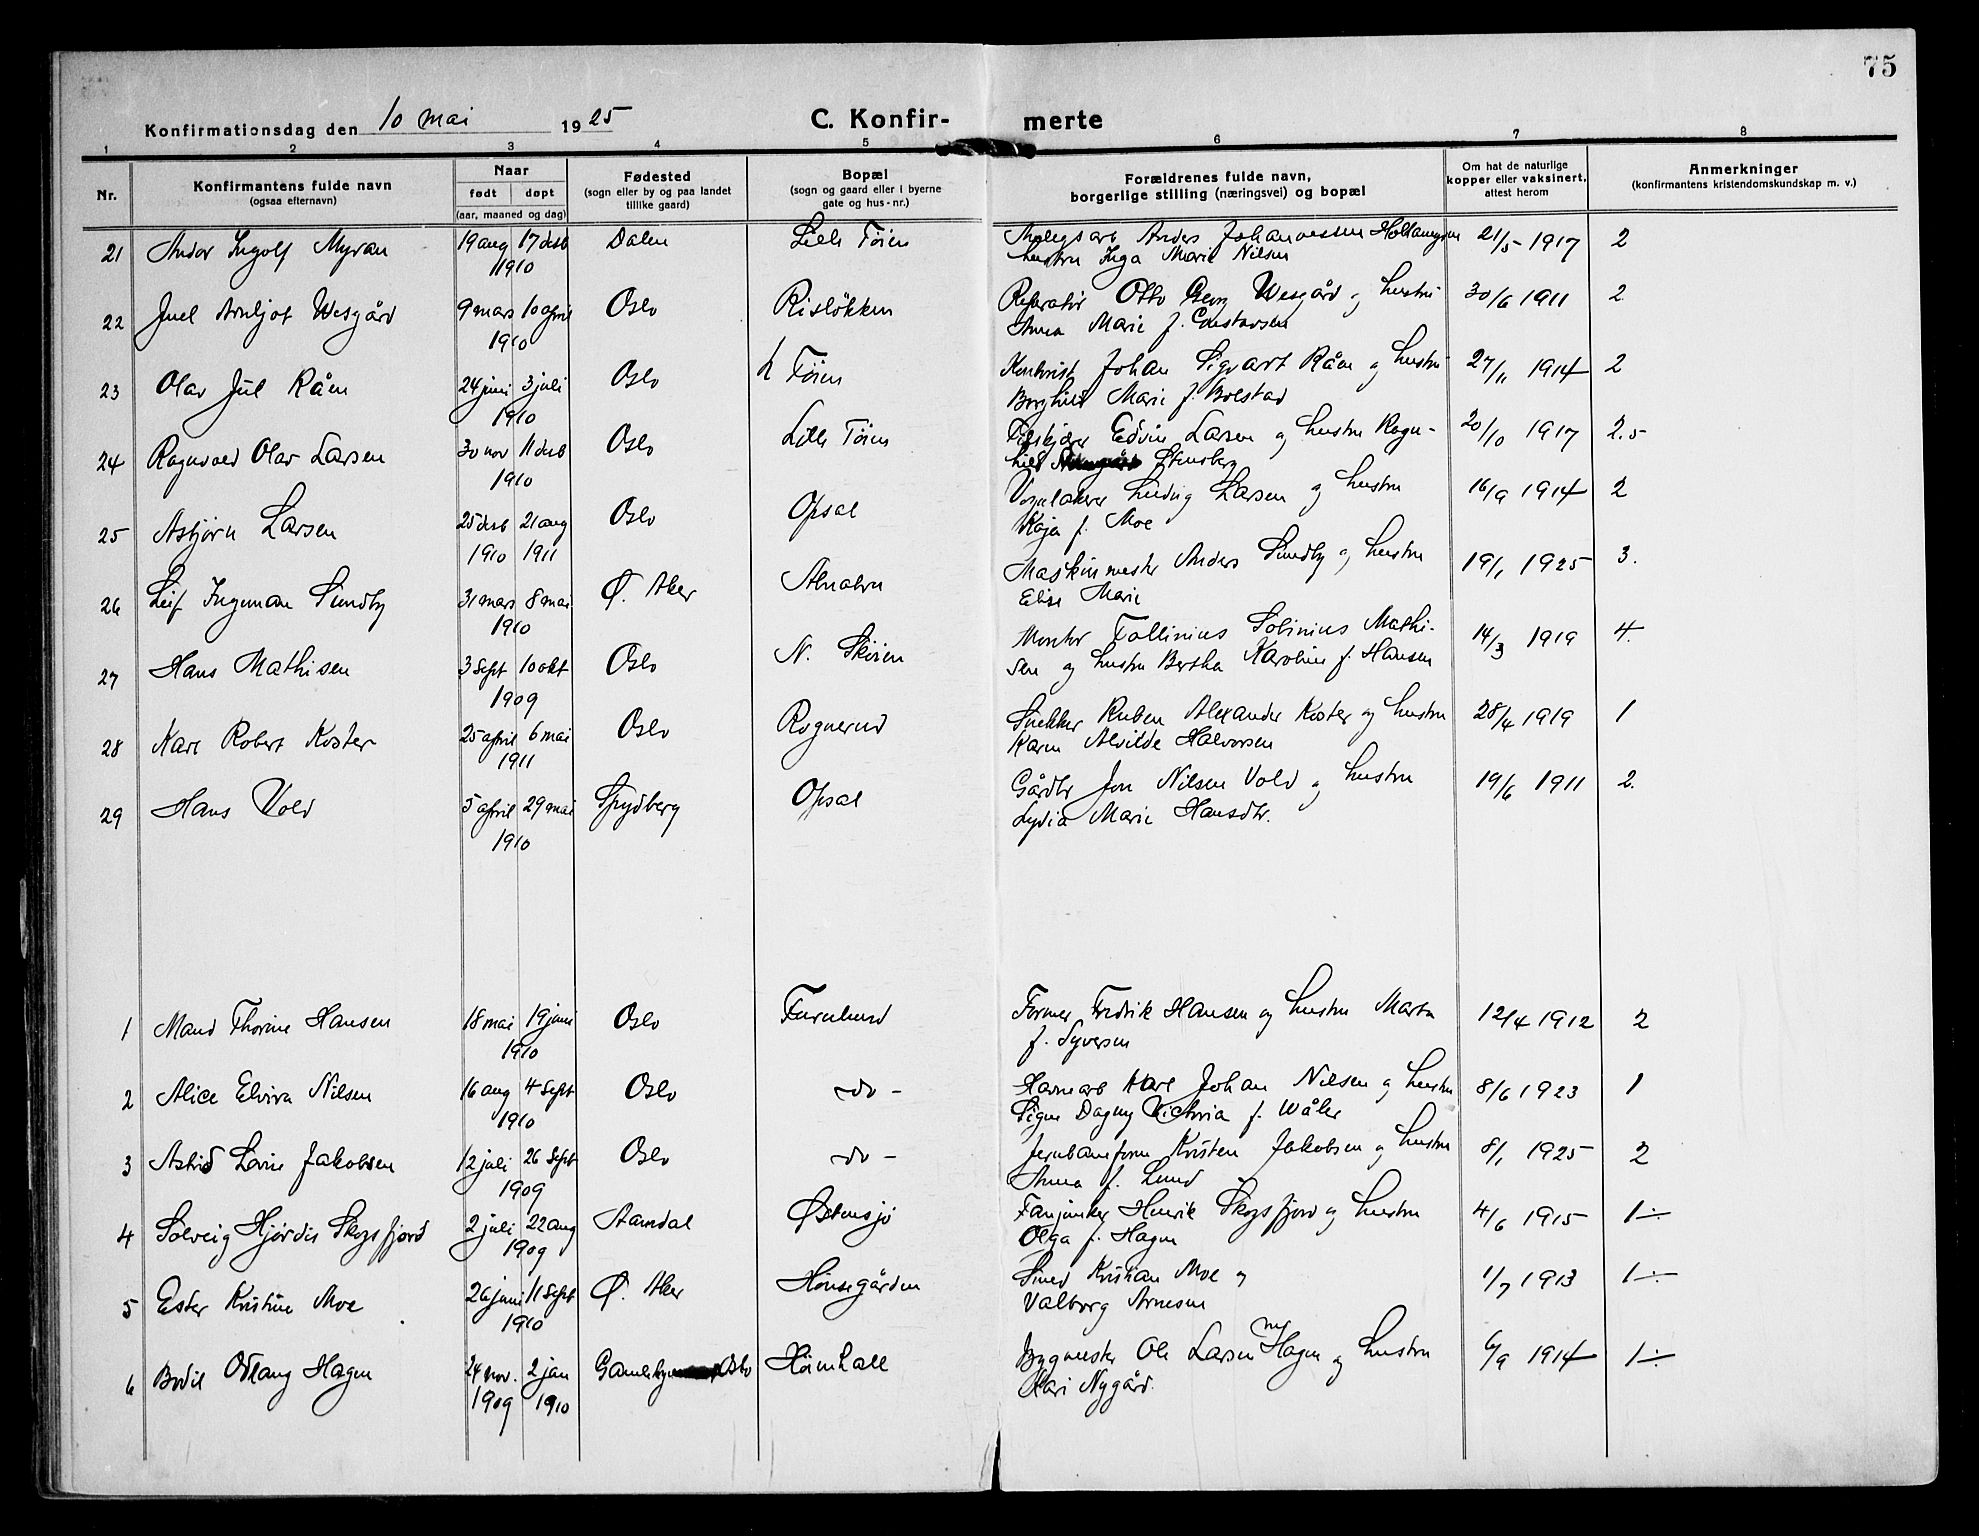 75
Konfirmationsdag den 10 mai 1925 C. Konfir- merte
1 2 3 4 5 6 7 8
Nr. Konfirmantens fulde navn (ogsaa efternavn) Naar født døpt (aar, maaned og dag) Fødested (sogn eller by og paa landet tillike gaard) Bopæl (sogn og gaard eller i byerne gate og hus-nr.) Forældrenes fulde navn, borgerlige stilling (næringsvei) og bopæl Om hat de naturlige kopper eller vaksinert, attest herom Anmerkninger (konfirmantens kristendomskundskap m. v.)
21 Andor Ingolf Myran 19 aug 17 desb Dalen Lille Töien Anders Johannessen 21/5 1917 2
1910 hustru Inga Marie Nilsen
22 Juel Arnljot Wesgård 9 mars 10 april Oslo Rislökken Reparatör Otto Georg Wesgård og hustru 30/6 1911 2
1910 Anna Marie f. Gustavsen
23 Olav Jul Råen 24 juni 3 juli Oslo L Töien Kontorist Johan Sigvart Råen og hustru 27/11 1914 2
1910 Borghild Marie f. Bolstad
24 Ragnvald Olav Larsen 30 nov 11 desb Oslo Lille Töien Edvin Larsen og hustru Ragn- 20/10 1917 2.5
1910 hild Stensberg
25 Asbjörn Larsen 25 desb 21 aug Oslo Opsal Ludvig Larsen og hustru 16/9 1914 2
1910 1911 Kaja f. Moe
26 Leif Ingeman Sundby 31 mars 8 mai Ø. Aker Alnabru Maskinmester Anders Sundby og hustru 19/1 1925 3.
1910 Elise Marie
27 Hans Mathisen 3 sept 10 okt Oslo N. Sköien Montör Tollinius Solinius Mathi- 14/3 1919 4.
1909 sen og hustru Bertha Karoline f. Hansen
28 Karl Robert Koster 25 april 6 mai Oslo Rognerud Snekker Ruben Alexander Koster og hustru 28/4 1919 1
1911 Karen Alvilde Halvorsen
29 Hans Vold 5 april 29 mai Spydberg Opsal Gårdbr Jon Nilsen Vold og hustru 19/6 1911 2.
1910 Lydia Marie Hansdtr.
1 Maud Thorine Hansen 18 mai 19 juni Oslo Furulund Former Fredrik Hansen og hustru Marta 12/4 1912 2
1910 f. Syversen
2 Alice Elvira Nilsen 16 aug 4 sept Oslo -do- Havnearb Karl Johan Nilsen og hustru 8/6 1923 1
1910 Signe Dagny Victoria f. Wåler
3 Astrid Lovise Jakobsen 12 juli 26 sept Oslo -do- Kristen Jakobsen og hustru 8/1 1925 2
1909 Anna f. Lund
4 Solveig Hjørdis Skogsfjord 2 juli 22 aug Aamdal Østensjö Fanejunker Henrik Skogsfjord og hustru 4/6 1915 1÷
1909 Olga f. Hagen
5 Ester Kristine Moe 26 juni 11 sept Ø. Aker Hönsegården Smed Kristian Moe og 1/7 1913 1÷
1910 Valborg Arnesen
6 Bodil Odlaug Hagen 24 nov. 2 jan Gamlebyen Oslo Höinhall Bygmester Ole Larsen Hagen og hustru 6/9 1914 1÷
1909 1910 Kari Nygård.